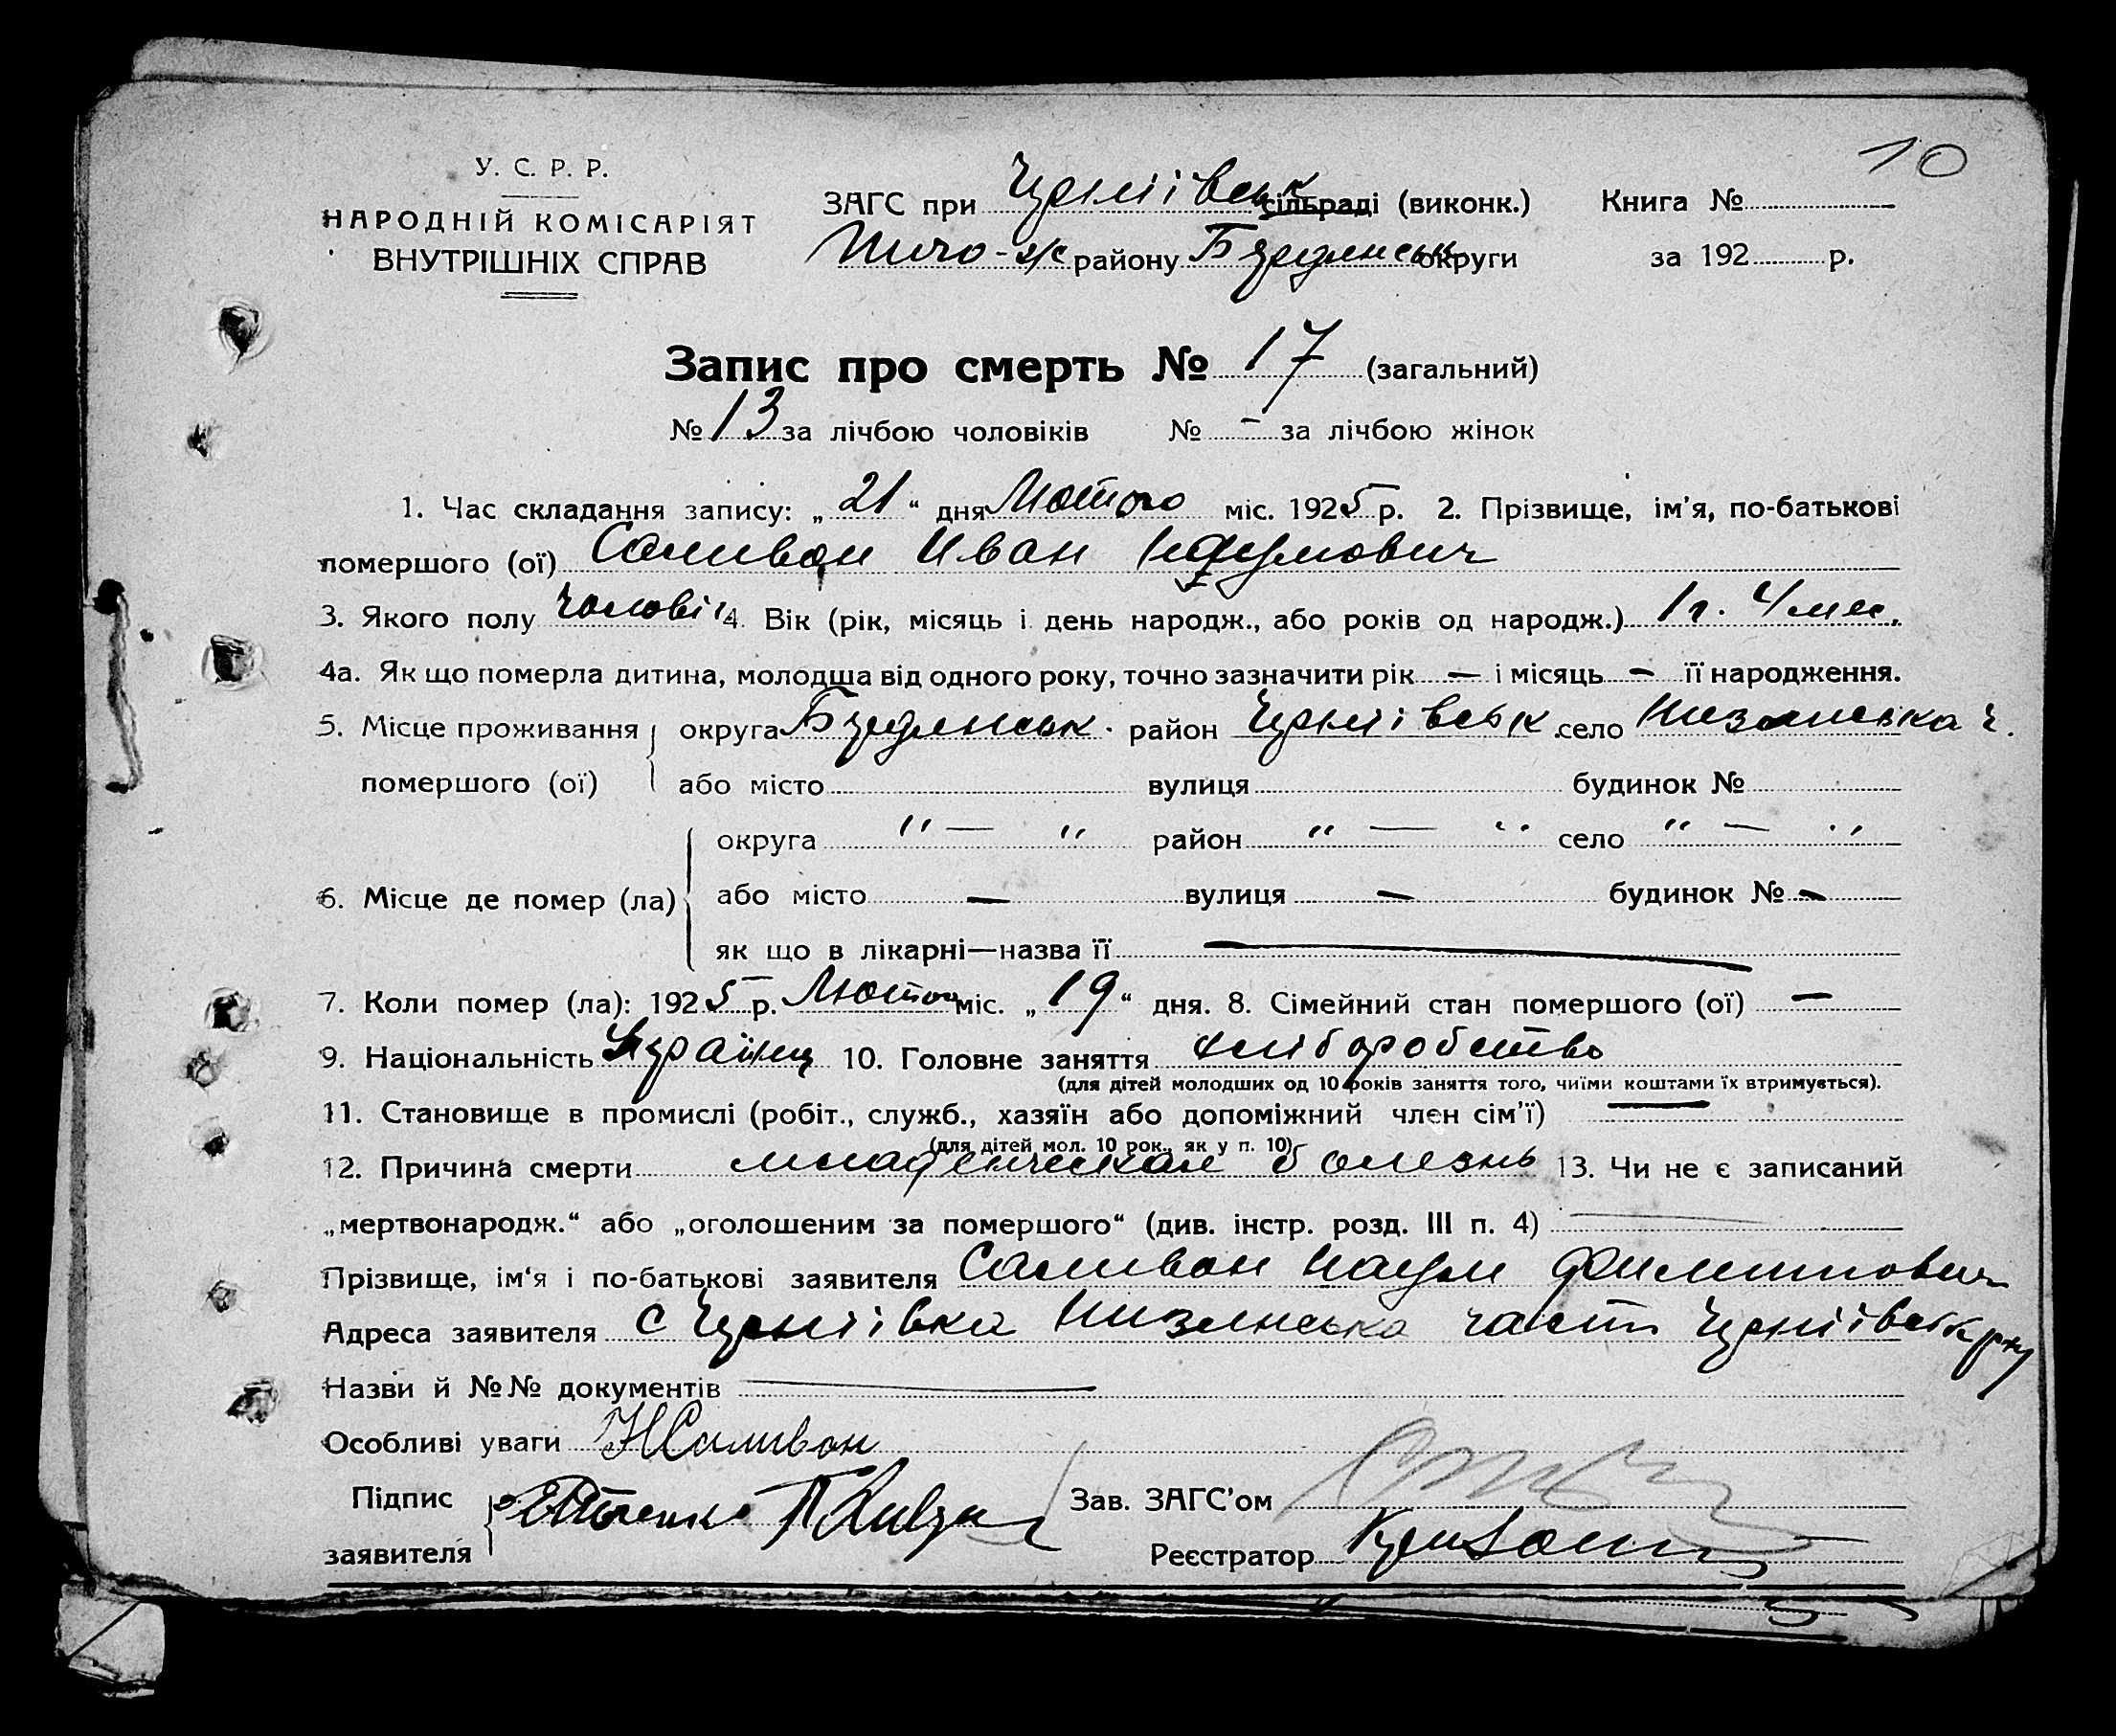 10
У. С. Р. Р.
НАРОДНІЙ КОМІСАРІЯТ
ВНУТРІШНІХ СПРАВ
ЗАГС при Чернігівськ сільраді (виконк.) Книга №
району Бердянськ округи за 192 р.
Запис про смерть № 17 (загальний)
№ 13 за лічбою чоловіків № - за лічбою жінок
1. Час складання запису: „21“ дня Лютого міс. 1925 р. 2. Прізвище, ім'я, по-батькові
помершого (ої) Саливон Иван Наумович
3. Якого полу чоловіч 4. Вік (рік, місяць і день народж., або років од народж.) 1 г. 4 мес.
4а. Як що померла дитина, молодша від одного року, точно зазначити рік — і місяць — її народження.
5. Місце проживання округа Бердянськ. район Чернігівськ село Низянська ч.
помершого (ої) або місто вулиця будинок №
округа " — " район " — " село " — "
6. Місце де помер (ла) або місто — вулиця — будинок № -
як що в лікарні—назва її —
7. Коли помер (ла): 1925 р. Лютого міс. „19“ дня. 8. Сімейний стан помершого (ої) —
9. Національність Українц 10. Головне заняття хліборобство
(для дітей молодших од 10 років заняття того, чиїми коштами їх втримується).
11. Становище в промислі (робіт., служб., хазяїн або допоміжний член сім'ї) —
(для дітей мол. 10 рок., як у п. 10)
12. Причина смерти младенческая болезнь 13. Чи не є записаний
„мертвонародж.“ або „оголошеним за помершого“ (див. інстр. розд. III п. 4) —
Прізвище, ім'я і по-батькові заявителя Саливон Наум Филиппович
Адреса заявителя с Чернігівка Низянська часть Чернігівськ р-ну
Назви й №№ документів —
Особливі уваги Н Саливон
Підпис Зав. ЗАГС'ом
заявителя Реєстратор